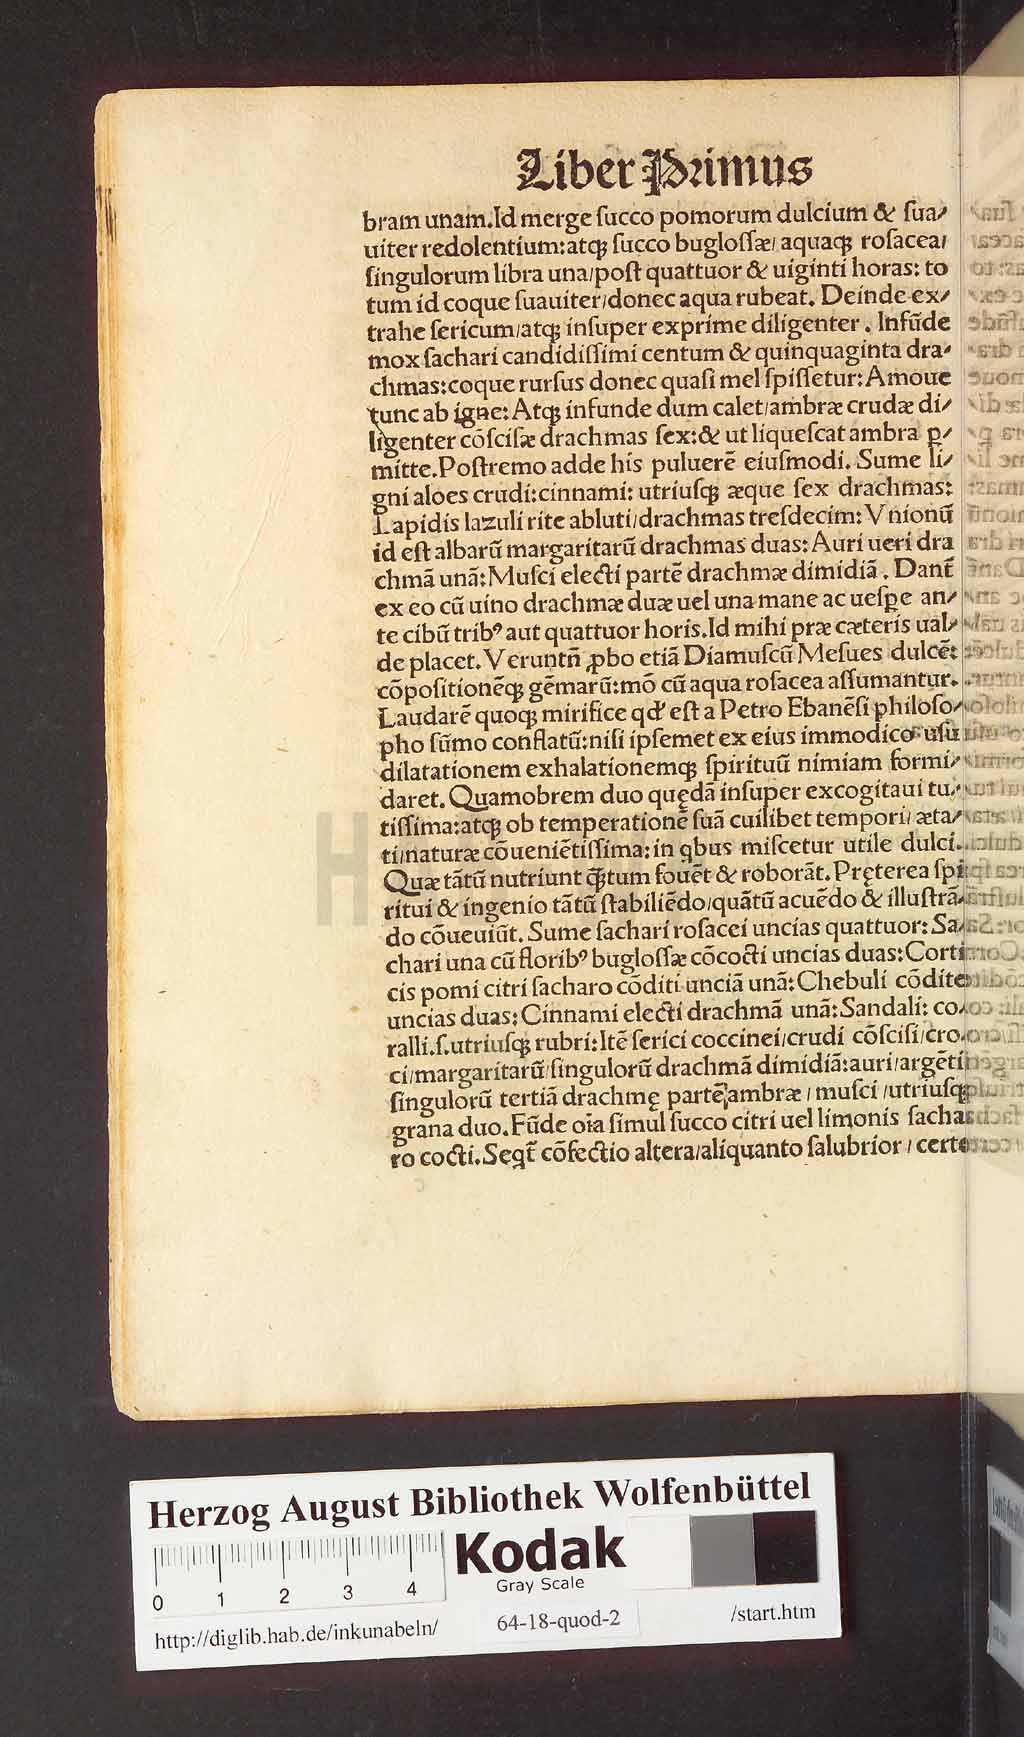 Liber Primus
bram unam.Id merge ſucco pomorum dulcium & ſua/
uiter redolentium:atqꝫ ſucco bugloſſæ/ aquaqꝫ roſacea/
ſingulorum libra una/poſt quattuor & uiginti horas: to
tum id coque ſuauiter/donec aqua rubeat. Deinde ex/
trahe ſericum/atqꝫ inſuper exprime diligenter . Infūde
mox ſachari candidiſſimi centum & quinquaginta dra/
chmas:coque rurſus donec quaſi mel ſpiſſetur: Amoue
tunc ab igne: Atqꝫ infunde dum calet/ambræ crudæ di/
ligenter cōſciſæ drachmas ſex:& ut liqueſcat ambra ꝑ/
mitte.Poſtremo adde his puluerē eiuſmodi. Sume li/
gni aloes crudi:cinnami: utriuſqꝫ æque ſex drachmas:
Lapidis lazuli rite abluti/drachmas treſdecim: Vnionū
id eſt albarū margaritarū drachmas duas: Auri ueri dra
chmā unā: Muſci electi partē drachmæ dimidiā . Dant̄
ex eo cū uino drachmæ duæ uel una mane ac ueſꝑe an/
te cibū tribꝰ aut quattuor horis.Id mihi præ cæteris ual/
de placet. Veruntn̄ ꝓbo etiā Diamuſcū Meſues dulcē:
cōpoſitionēqꝫ gēmarū:mō cū aqua roſacea aſſumantur.
Laudarē quoqꝫ mirifice qd' eſt a Petro Ebanēſi philoſo/
pho ſūmo conflatū:niſi ipſemet ex eius immodico uſu
dilatationem exhalationemqꝫ ſpirituū nimiam formi/
daret. Quamobrem duo quędā inſuper excogitaui tu/
tiſſima:atqꝫ ob temperationē ſuā cuilibet tempori/ æta/
ti/naturæ cōueniētiſſima: in qbus miſcetur utile dulci.
Quæ tātū nutriunt q̄tum fouēt & roborāt. Pręterea ſpi
ritui & ingenio tātū ſtabiliēdo/quātū acuēdo & illuſtrā/
do cōueuiūt. Sume ſachari roſacei uncias quattuor: Sa/
chari una cū floribꝰ bugloſſæ cōcocti uncias duas: Corti
cis pomi citri ſacharo cōditi unciā unā: Chebuli cōdite
uncias duas: Cinnami electi drachmā unā: Sandali: co/
ralli.ſ.utriuſqꝫ rubri: Itē ſerici coccinei/crudi cōſciſi/cro
ci/margaritarū/ſingulorū drachmā dimidiā:auri/argēti
ſingulorū tertiā drachmę partē/ambræ / muſci /utriuſqꝫ
grana duo. Fūde oīa ſimul ſucco citri uel limonis ſacha
ro cocti. Seqt̄ cōfectio altera/aliquanto ſalubrior / certe
Herzog August Bibliothek Wolfenbüttel
Kodak
Gray Scale
0 1 2 3 4
64-18-quod-2
http://diglib.hab.de/inkunabeln/
/start.htm